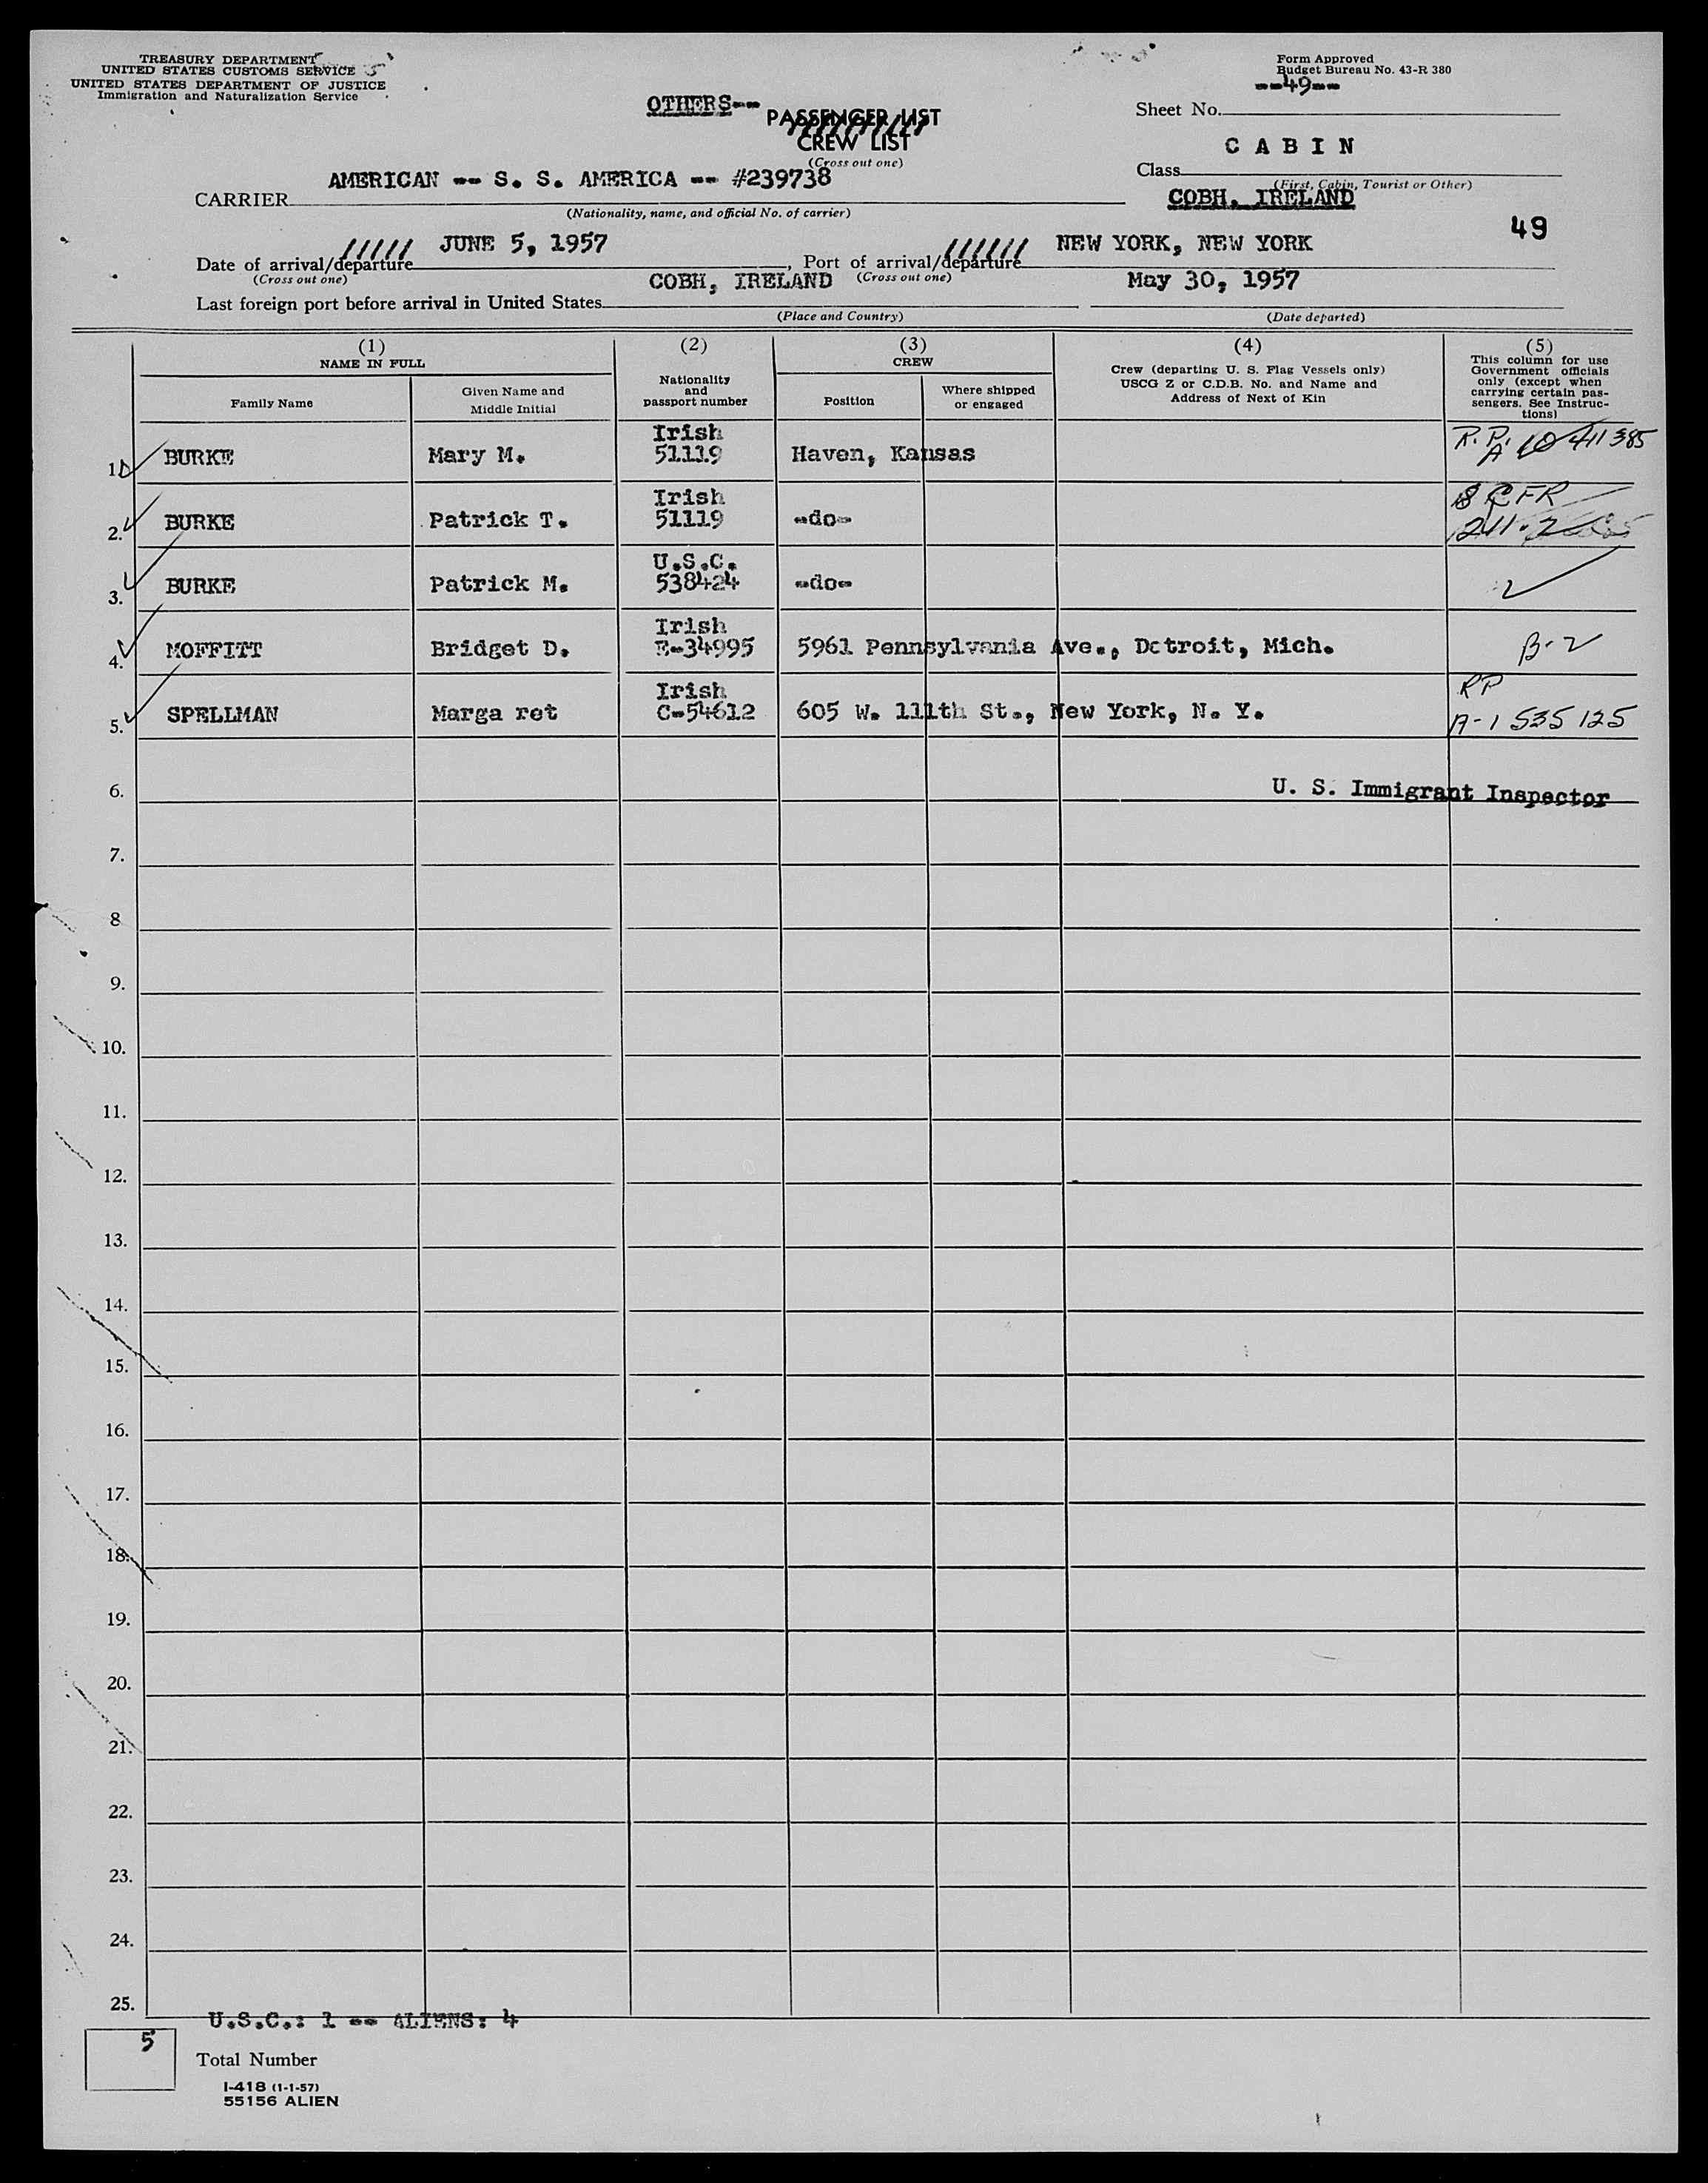 TREASURY DEPARTMENT
UNITED STATES CUSTOMS SERVICE
UNITED STATES DEPARTMENT OF JUSTICE
Immigration and Naturalization Service
Form Approved
Budget Bureau No. 43-R 380
--49--
Sheet No.
OTHERS--
PASSENGER LIST
CREW LIST
(Cross out one)
C A B I N
Class
(First, Cabin, Tourist or Other)
COBH, IRELAND
AMERICAN -- S. S. AMERICA -- #239738
CARRIER
(Nationality, name, and official No. of carrier)
49
JUNE 5, 1957
NEW YORK, NEW YORK
Date of arrival/departure
, Port of arrival/departure
(Cross out one)
(Cross out one)
COBH, IRELAND
May 30, 1957
Last foreign port before arrival in United States
(Place and Country)
(Date departed)
(1)
NAME IN FULL
Family Name
Given Name and
Middle Initial
(2)
Nationality
and
passport number
(3)
CREW
Position
Where shipped
or engaged
(4)
Crew (departing U. S. Flag Vessels only)
USCG Z or C.D.B. No. and Name and
Address of Next of Kin
(5)
This column for use
Government officials
only (except when
carrying certain pas-
sengers. See Instruc-
tions)
Irish
R.P.
1. BURKE Mary M. 51119 Haven, Kansas A 10 411 385
Irish
8 CFR
2. BURKE Patrick T. 51119 -do- 211.2
U.S.C.
3. BURKE Patrick M. 538424 -do-
Irish
4. MOFFITT Bridget D. E-34995 5961 Pennsylvania Ave., Detroit, Mich. B-2
Irish
RP
5. SPELLMAN Marga ret C-54612 605 W. 111th St., New York, N. Y. A-1 535 125
6. U. S. Immigrant Inspector
7.
8
9.
10.
11.
12.
13.
14.
15.
16.
17.
18.
19.
20.
21.
22.
23.
24.
25.
U.S.C.: 1 -- ALIENS: 4
5
Total Number
I-418 (1-1-57)
55156 ALIEN